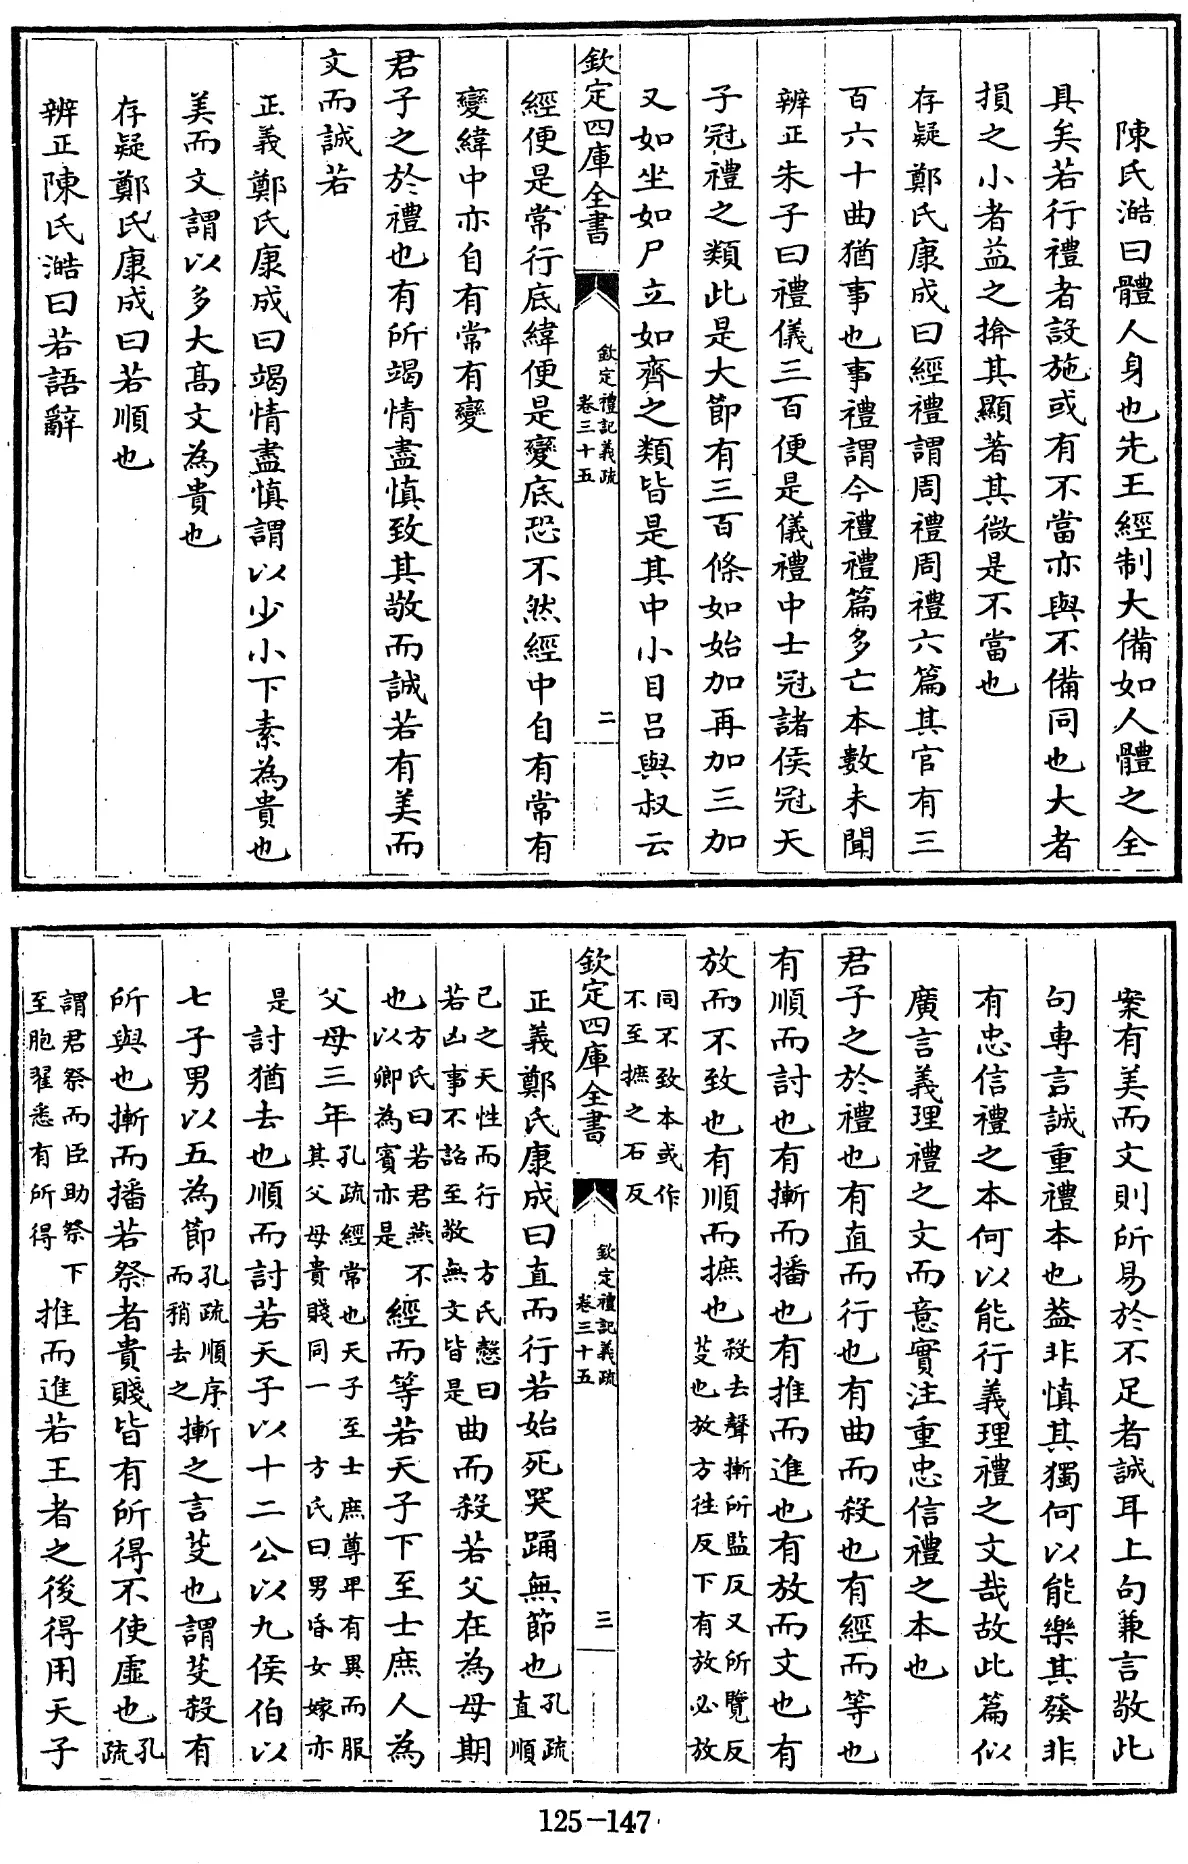 陳氏澔曰體人身也先王經制大備如人體之全
具矣若行禮者設施或有不當亦與不備同也大者
損之小者益之揜其顯著其微是不當也
存疑鄭氏康成曰經禮謂周禮周禮六篇其官有三
百六十曲猶事也事禮謂今禮禮篇多亡本數未聞
辨正朱子曰禮儀三百便是儀禮中士冠諸侯冠天
子冠禮之類此是大節有三百條如始加再加三加
又如坐如尸立如齊之類皆是其中小目呂與叔云
欽定四庫全書
欽定禮記義疏
卷三十五
二
經便是常行底緯便是變底恐不然經中自有常有
變緯中亦自有常有變
君子之於禮也有所竭情盡慎致其敬而誠若有美而
文而誠若
正義鄭氏康成曰竭情盡慎謂以少小下素為貴也
美而文謂以多大高文為貴也
存疑鄭氏康成曰若順也
辨正陳氏澔曰若語辭
案有美而文則所易於不足者誠耳上句兼言敬此
句專言誠重禮本也蓋非慎其獨何以能樂其發非
有忠信禮之本何以能行義理禮之文哉故此篇似
廣言義理禮之文而意實注重忠信禮之本也
君子之於禮也有直而行也有曲而殺也有經而等也
有順而討也有摲而播也有推而進也有放而文也有
放而不致也有順而摭也
殺去聲摲所監反又所覽反
芟也放方往反下有放必放
同不致本或作
不至摭之石反
欽定四庫全書
欽定禮記義疏
卷三十五
三
正義鄭氏康成曰直而行若始死哭踊無節也
孔疏
直順
己之天性而行
方氏慤曰
若凶事不詔至敬無文皆是
曲而殺若父在為母期
也
方氏曰若君燕不
以卿為賓亦是
經而等若天子下至士庶人為
父母三年
孔疏經常也天子至士庶尊卑有異而服
其父母貴賤同一
方氏曰男昏女嫁亦
是
討猶去也順而討若天子以十二公以九侯伯以
七子男以五為節
孔疏順序
而稍去之
摲之言芟也謂芟殺有
所與也摲而播若祭者貴賤皆有所得不使虛也
孔
疏
謂君祭而臣助祭下
至胞翟悉有所得
推而進若王者之後得用天子
125-147